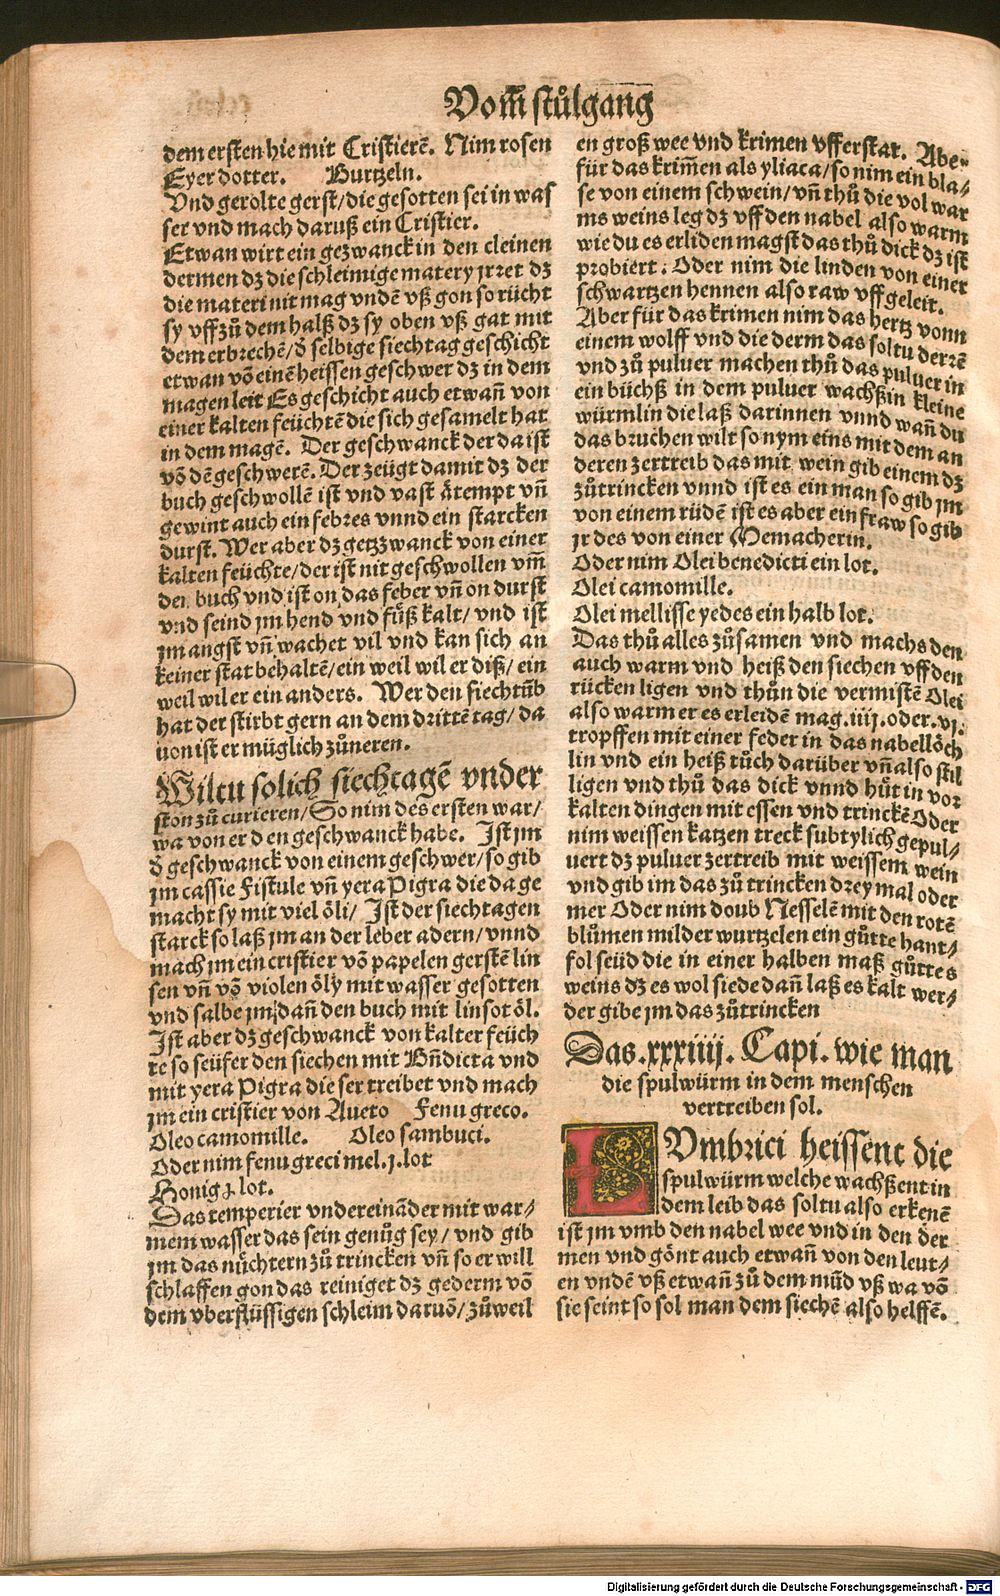 Vom̃ stůlgang̃
dem ersten hie mit Cristierẽ. Nim rosen
Eyer dotter. Burtzeln.
Vnd gerolte gerst/die gesotten sei in was
ser vnd mach daruß ein Cristier.
Etwan wirt ein gezwanck in den cleinen
dermen dz die schleimige matery jrret dz
die materi nit mag vndẽ vß gon so rücht
sy vff zů dem halß dz sy oben vß gat mit
dem erbrechẽ/d̕ selbige siechtag geschicht
etwan võ einẽ heissen geschwer dz in dem
magen leit Es geschicht auch etwañ von
einer kalten feüchtẽ die sich gesamelt hat
in dem magẽ. Der geschwanck der da ist
võ dẽ geschwerẽ. Der zeügt damit dz der
buch geschwollẽ ist vnd vast ãrtempt vñ
gewint auch ein febres vnnd ein starcken
durst. Wer aber dz getzzwanck von einer
kalten feüchte/der ist nit geschwollen vm̃
den buch vnd ist on das feber vñ on durst
vnd seind jm hend vnd füß kalt/vnd ist
jm angst vñ wachet vil vnd kan sich an
keiner stat behaltẽ/ein weil wil er diß/ein
weil wil er ein anders. Wer den siechtũb
hat der stirbt gern an dem drittẽ tag/da
uon ist er müglich zůneren.
Wiltu solich siechtagẽ vnder
ston zů curieren/So nim des ersten war/
wa von er den geschwanck habe. Ist jm
d̕ geschwanck von einem geschwer/so gib
jm cassie Fistule vñ yera Pigra die da ge
macht sy mit viel öli/ Ist der siechtagen
starck so laß jm an der leber adern/vnnd
mach jm ein cristier võ papelen gerstẽ lin
sen vñ võ violen öly mit wasser gesotten
vnd salbe jm dañ den buch mit linsot öl.
Ist aber dz geschwanck von kalter feüch
te so seüfer den siechen mit Bñdicta vnd
mit yera Pigra die ser treibet vnd mach
jm ein cristier von Aueto Fenu greco.
Oleo camomille. Oleo sambuci.
Oder nim fenu greci mel.j.lot
Honig j.lot.
Das temperier vndereinãder mit war/
mem wasser das sein genůg sey/vnd gib
jm das nüchtern zů trincken vñ so er will
schlaffen gon das reiniget dz gederm võ
dem vberflüssigen schleim daruõ/zůweil
en groß wee vnd krimen vfferstat. Abe/
für das krim̃en als yliaca/so nim ein bla/
se von einem schwein/vñ thů die vol war
ms weins leg dz vff den nabel also warm
wie du es erliden magst das thů dick dz ist
probiert: Oder nim die linden von einer
schwartzen hennen also raw vff geleit.
Aber für das krimen nim das hertz vonn
einem wolff vnd die derm das soltu derrẽ
vnd zů puluer machen thů das puluer in
ein büchß in dem puluer wachßin kleine
würmlin die laß darinnen vnnd wañ du
das bruchen wilt so nym eins mit dem an
deren zertreib das mit wein gib einem dz
zůtrincken vnnd ist es ein man so gib jm
von einem rüdẽ ist es aber ein fraw so gib
jr des von einer Memacherin.
Oder nim Olei benedicti ein lot.
Olei camomille.
Olei mellisse yedes ein halb lot.
Das thů alles zůsamen vnd machs den
auch warm vnd heiß den siechen vff den
rücken ligen vnd thůn die vermistẽ Olei
also warm er es erleidẽ mag.iiij.oder.vj.
tropffen mit einer feder in das nabellöch
lin vnd ein heiß tůch darüber vñ also stil
ligen vnd thů das dick vnnd hüt in vor
kalten dingen mit essen vnd trinckẽ Oder
nim weissen katzen treck subtylich gepul/
uert dz puluer zertreib mit weissem wein
vnd gib im das zů trincken drey mal oder
mer Oder nim doub Nesselẽ mit den rotẽ
blůmen milder wurtzelen ein gůtte hant/
fol seüd die in einer halben maß gůttes
weins dz es wol siede dañ laß es kalt wer/
der gibe jm das zůtrincken
Das.xxxiiij. Capi. wie man
die spulwürm in dem menschen
vertreiben sol.
LVmbrici heissent die
spulwürm welche wachßent in
dem leib das soltu also erkenẽ
ist jm vmb den nabel wee vnd in den der
men vnd gönt auch etwañ von den leut/
en vndẽ vß etwañ zů dem mũd vß wa võ
sie seint so sol man dem siechẽ also helffẽ.
Digitalisierung gefördert durch die Deutsche Forschungsgemeinschaft - DFG